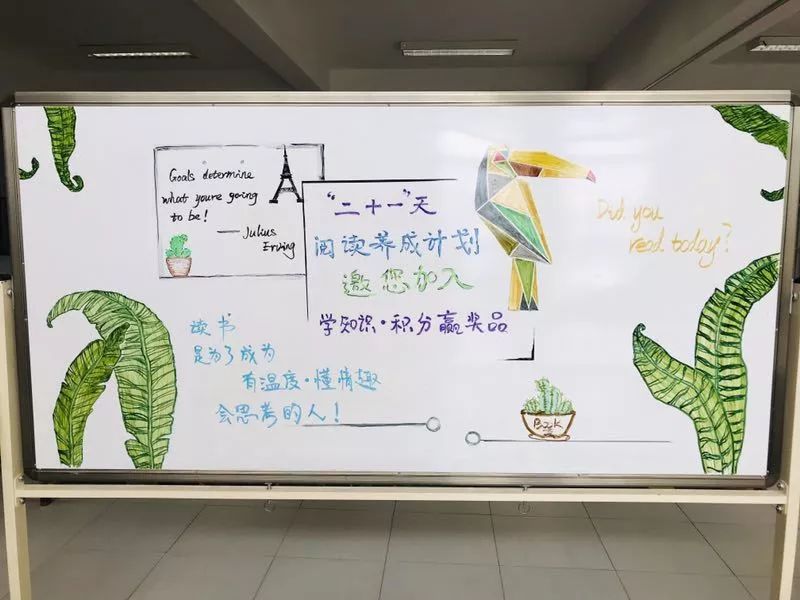 Goals determine
what youre going
to be!
—Julius
Erving
“二十一”天
阅读养成计划
邀您加入
学知识·积分赢奖品
Did you
read today?
读书
是为了成为
有温度·懂情趣
会思考的人！